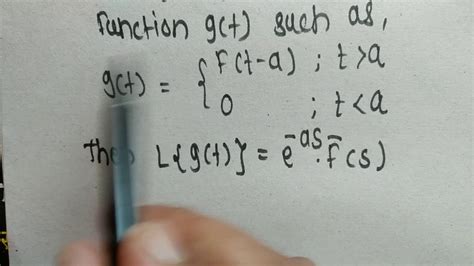 function g(t) such as,
g(t) = { F(t-a) ; t>a
0 ; t<a
then L{g(t)} = e^{-as}. F̄(s)